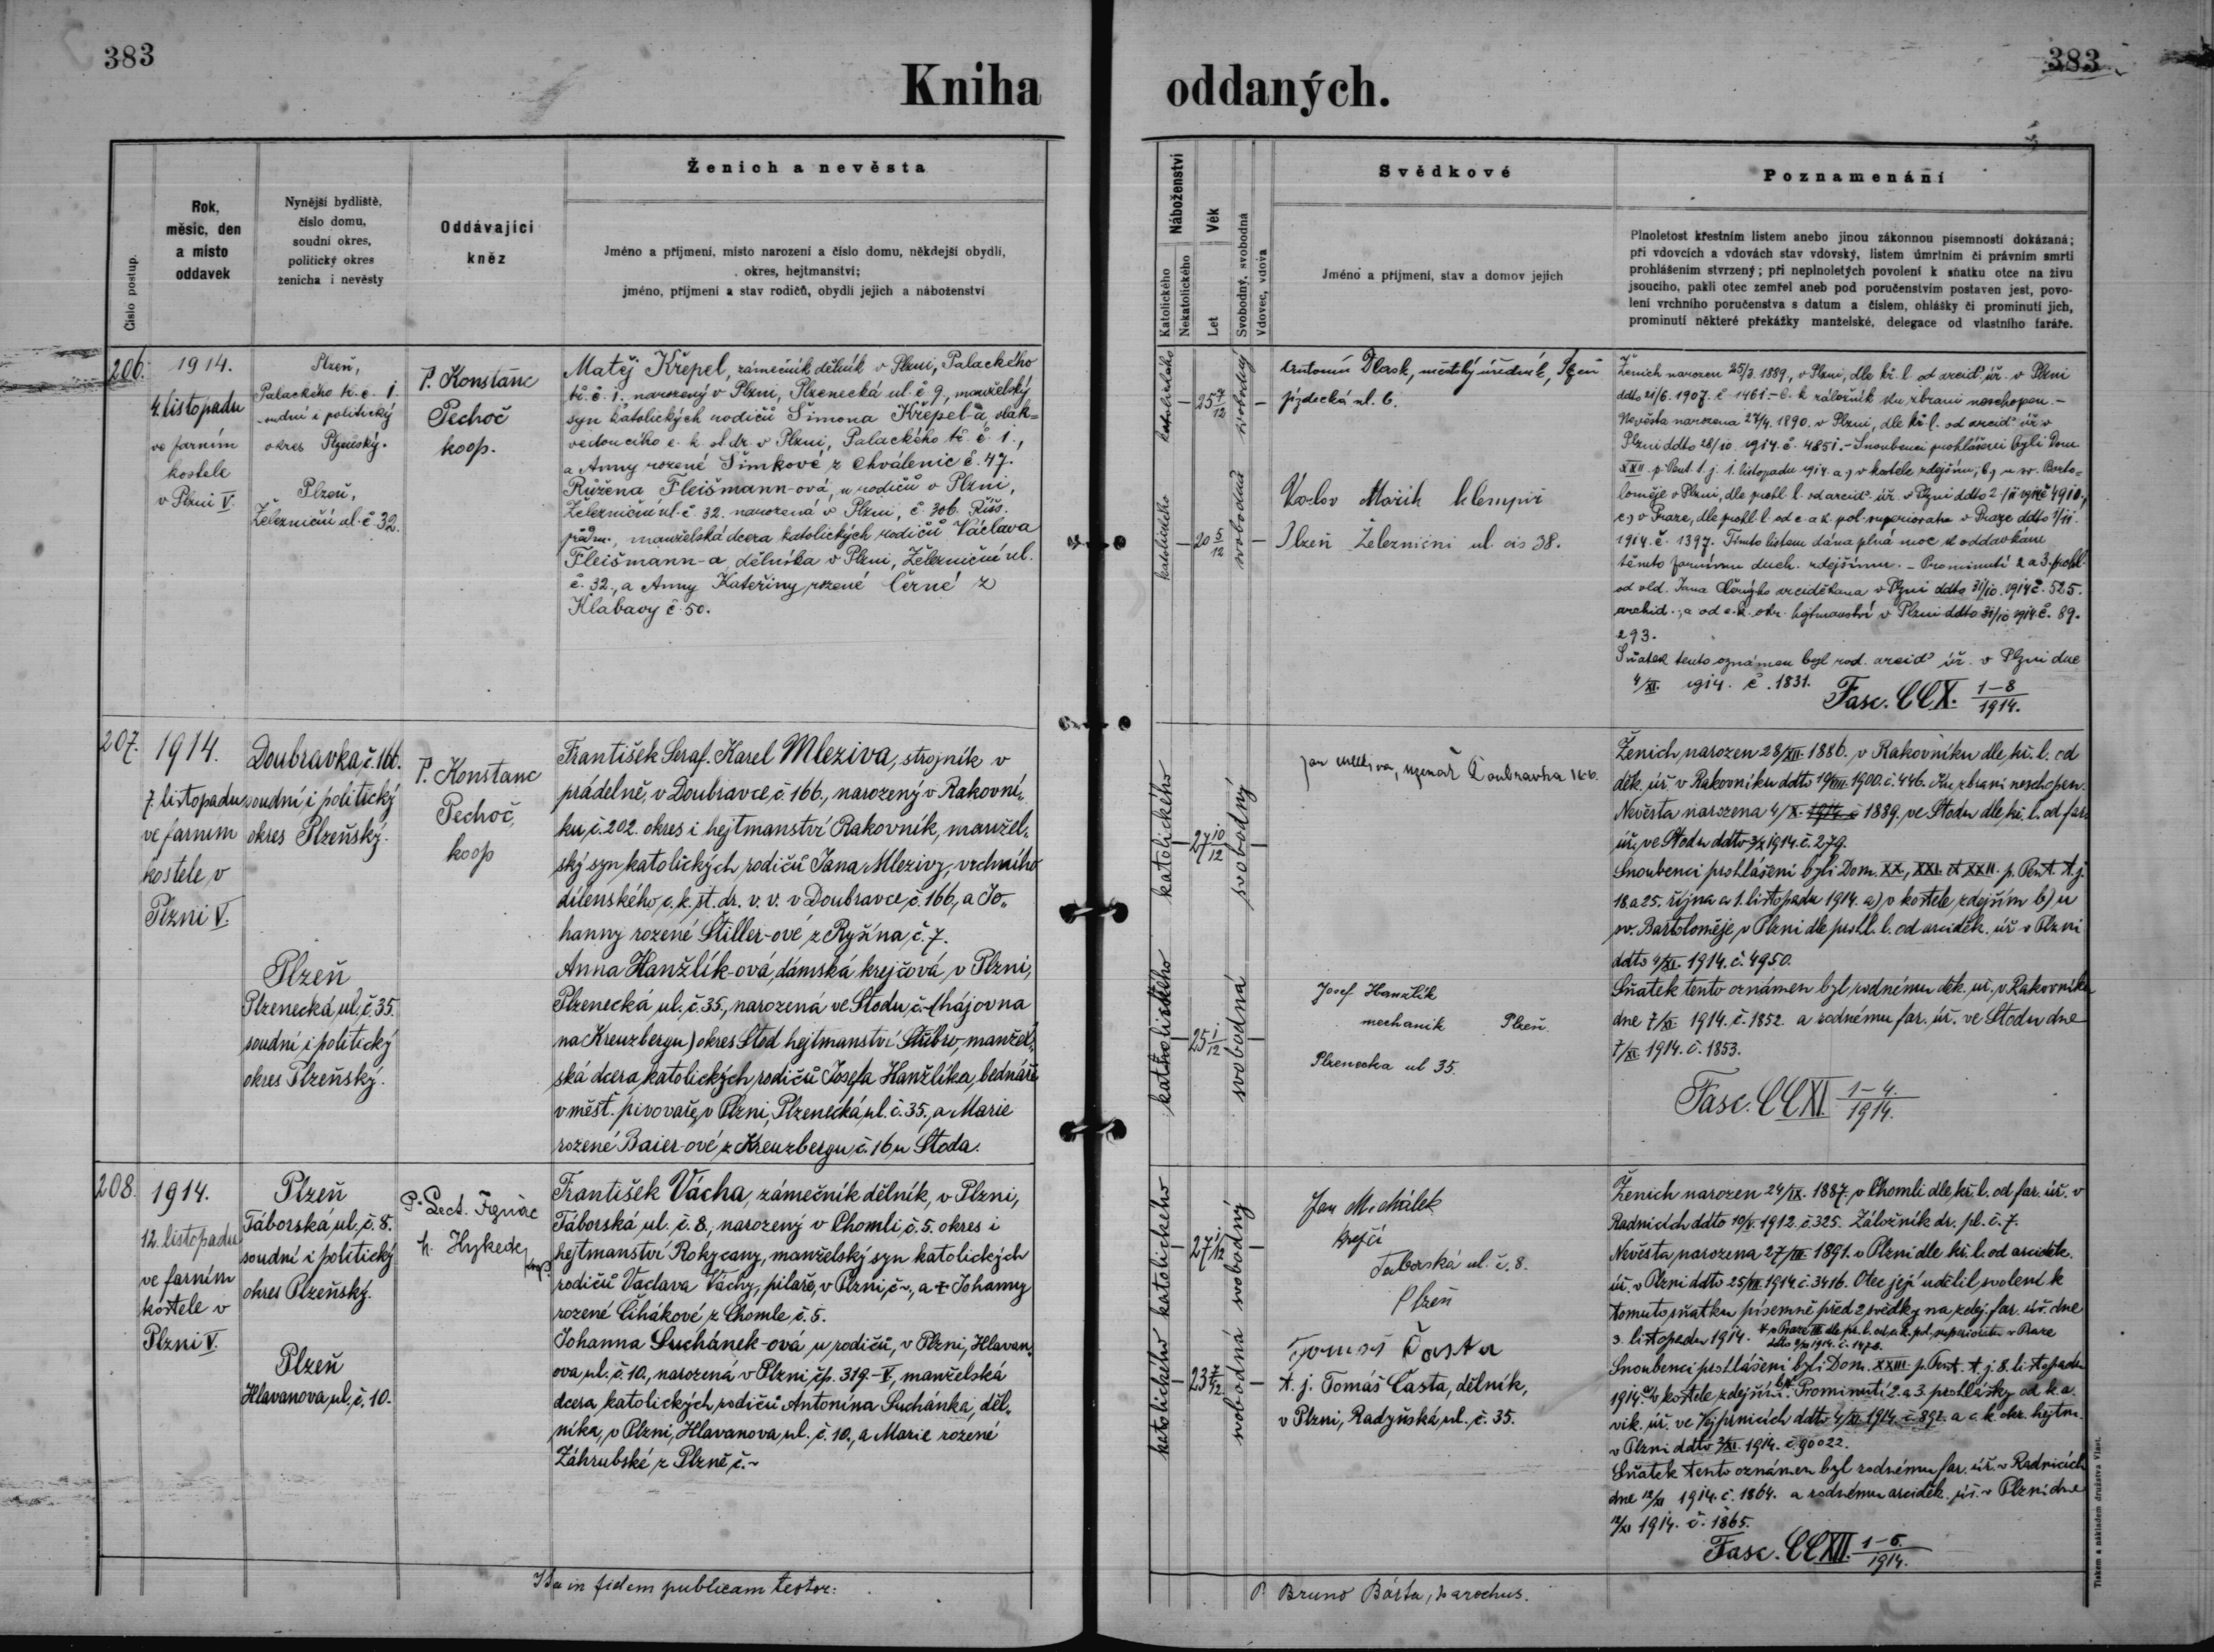 383
Kniha
Číslo postup.
Rok,
měsíc, den
a místo
oddavek
Nynější bydliště,
číslo domu,
soudní okres,
politický okres
ženicha i nevěsty
Oddávající
kněz
Ženich a nevěsta
Jméno a příjmení, místo narození a číslo domu, někdejší obydlí,
okres, hejtmanství;
jméno, příjmení a stav rodičů, obydlí jejich a náboženství
206.
1914.
4. listopadu
ve farním
kostele
v Plzni V.
Plzeň,
Palackého tř. č. 1.
soudní i politický
okres Plzeňský.
Plzeň,
Železniční ul. č. 32.
P. Konstanc
Pechoč
koop.
Matěj Křepel, zámečník dělník v Plzni, Palackého
tř. č. 1. narozený v Plzni, Plzenecká ul. č. 9, manželský
syn katolických rodičů Šimona Křepel-a, vlak=
vedoucího c. k. st. dr. v Plzni, Palackého tř. č. 1.,
a Anny rozené Šimkové z Chválenic č. 47.
Růžena Fleišmann-ová, u rodičů v Plzni,
Železniční ul. č. 32. narozená v Plzni, č. 306. Říš.
předm., manželská dcera katolických rodičů Václava
Fleišmann-a, dělníka v Plzni, Železniční ul.
č. 32., a Anny Kateřiny rozené Černé z
Klabavy č. 50.
207.
1914.
7. listopadu
ve farním
kostele v
Plzni V.
Doubravka, č. 166.
soudní i politický
okres Plzeňský.
Plzeň
Plzenecká ul. č. 35.
soudní i politický
okres Plzeňský.
P. Konstanc
Pechoč,
koop
František Seraf. Karel Mleziva, strojník v
prádelně, v Doubravce, č. 166., narozený v Rakovní„
ku, č. 202. okres i hejtmanství Rakovník, manžel„
ský syn katolických rodičů Jana Mlezivy, vrchního
dílenského, c. k. st. dr. v. v. v Doubravce, č. 166, a Jo„
hanny rozené Štiller-ové z Ryšína, č. 7.
Anna Hanžlík-ová, dámská krejčová v Plzni,
Plzenecká ul. č. 35., narozená ve Stodu, č.-(hájovna
na Kreuzbergu) okres Stod hejtmanství Stříbro, manžel„
ská dcera katolických rodičů Josefa Hanžlíka, bednáře
v měšť. pivovaře, v Plzni, Plzenecká ul. č. 35., a Marie
rozené Baier-ové z Kreuzbergu, č. 16 u Stoda.
208.
1914.
12. listopadu
ve farním
kostele v
Plzni V.
Plzeň
Táborská ul. č. 8.
soudní i politický
okres Plzeňský.
Plzeň
Hlavanova ul. č. 10.
P. Lect. Ignác
Hykeda
koop.
František Vácha, zámečník dělník, v Plzni,
Táborská ul. č. 8., narozený v Chomli č. 5. okres i
hejtmanství Rokycany, manželský syn katolických
rodičů Václava Váchy, pilaře, v Plzni, č-, a + Johanny
rozené Čihákové z Chomle č. 5.
Johanna Suchánek-ová u rodičů, v Plzni, Hlavan„
ova ul. č. 10., narozená v Plzni čp. 319.-V, manželská
dcera katolických rodičů Antonína Suchánka, děl„
níka, v Plzni, Hlavanova ul. č. 10., a Marie rozené
Záhrubské z Plzně č.-
Ita in fidem publicam testor:
383
oddaných.
Náboženství
Katolického
Nekatolického
Věk
Let
Svobodný, svobodná
Vdovec, vdova
Svědkové
Jméno a příjmení, stav a domov jejich
Poznamenání
Plnoletost křestním listem anebo jinou zákonnou písemností dokázaná;
při vdovcích a vdovách stav vdovský, listem úmrtním či právním smrti
prohlášením stvrzený; při neplnoletých povolení k sňatku otce na živu
jsoucího, pakli otec zemřel aneb pod poručenstvím postaven jest, povo-
lení vrchního poručenstva s datum a číslem, ohlášky či prominutí jich,
prominutí některé překážky manželské, delegace od vlastního faráře.
katolického
25 7/12
svobodný
Antonín Vlask, městský úředník, Plzeň
jízdecká ul. 6.
katolického
20 5/12
svobodná
Václav Mařík klempíř
Plzeň Železniční ul. čis 38.
Ženich narozen 25/3. 1889., v Plzni, dle kř. l. od arciď. úř. v Plzni
ddto 21/6. 1907. č. 1461.- C. k. záložník ku zbrani neschopen.-
Nevěsta narozena 27/4. 1890. v Plzni, dle kř. l. od arciď. úř. v
Plzni ddto 28/10. 1914. č. 4851.- Snoubenci prohlášeni byli Dom.
XXII. p. Pent. t. j. 1. listopadu 1914. a,) v kostele zdejším, b,) u sv. Barto=
loměje v Plzni, dle prohl. l. od arciď. úř. v Plzni ddto 2/11 1914 č. 4910.,
c,) v Praze, dle prohl. l. od c. a k. pol. superiorátu v Praze ddto 1/11.
1914. č. 1397. Tímto listem dána plná moc k oddavkám
těmto farnímu duch. zdejšímu. - Prominutí 2 a 3. prohl.
od vld. Jana Černýho arciděkana v Plzni ddto 31/10. 1914 č. 525.
archid., a od c. k. okr. hejtmanství v Plzni ddto 31/10 1914 č. 89.
293.
Sňatek tento oznámen byl rod. arciď. úř. v Plzni dne
4/XI. 1914. č. 1831.
Fasc. CCX. 1-8/1914.
katolického
27 10/12
svobodný
Jan Mleziva, Doubravka 166.
katolického
25 1/12
svobodná
Josef Hanžlík
mechanik Plzeň.
Plzenecka ul 35.
Ženich narozen 28/XII. 1886. v Rakovníku dle kř. l. od
děk. úř. v Rakovníku ddto 19/VIII. 1900. č. 446. Ku zbrani neschopen.
Nevěsta narozena 4/X. 1914. č 1889. ve Stodu dle kř. l. od far.
úř. ve Stodu ddto 3/X 1914. č. 279.
Snoubenci prohlášeni byli Dom. XX., XXI. et XXII. p. Pent. t. j.
18. a 25. října a 1. listopadu 1914. a) v kostele zdejším b) u
sv. Bartoloměje v Plzni dle prohl. l. od arciděk. úř. v Plzni
ddto 4/XI. 1914. č. 4950.
Sňatek tento oznámen byl rodnému děk. úř. v Rakovníku
dne 7/XI. 1914. č. 1852. a rodnému far. úř. ve Stodu dne
7/XI. 1914. č. 1853.
Fasc. CCXI. 1-4./1914.
katolického
27 1/12
svobodný
Jan Michálek
krejčí
Taborská ul. č. 8.
Plzeň
katolického
svobodná
Tomáš Časta
t. j. Tomáš Časta, dělník,
v Plzni, Radyňská ul. č. 35.
Ženich narozen 24/IX. 1887. v Chomli dle kř. l. od far. úř. v
Radnicích ddto 10/V. 1912. č. 325. Záložník dr. pl. č. 7.
Nevěsta narozena 27/III. 1891. v Plzni dle kř. l. od arciděk.
úř. v Plzni ddto 25/VII. 1914 č. 3416. Otec její udělil svolení k
tomuto sňatku písemně před 2 svědky na zdej. far. úř. dne
3. listopadu 1914.
Snoubenci prohlášeni byli Dom. XXIII. p. Pent. t. j. 8. listopadu
1914. a/ v kostele zdejším. Prominutí 2. a 3. prohlášky od k. a.
vik. úř. ve Vejprnicích ddto 4/XI. 1914. č. 892. a c. k. okr. hejtm.
v Plzni ddto 3/XI. 1914. č. 90022.
Sňatek tento oznámen byl rodnému far. úř. v Radnicích
dne 12/XI 1914. č. 1864. a rodnému arciděk. úř. v Plzni dne
12/XI 1914. č. 1865.
Fasc. CCXII. 1-6./1914.
P. Bruno Bárta, parochus.
Tiskem a nákladem družstva Vlast.